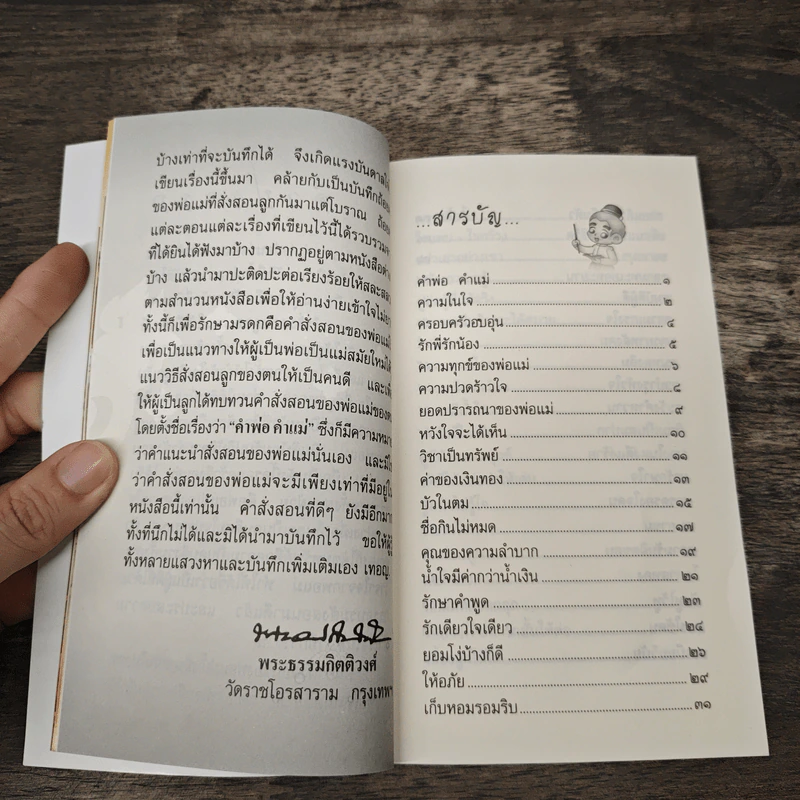 บ้างเท่าที่จะบันทึกได้ จึงเกิดแรงบันดาลใ
เขียนเรื่องนี้ขึ้นมา คล้ายกับเป็นบันทึกถ้อย
ของพ่อแม่ที่สั่งสอนลูกกันมาแต่โบราณ ถ้อย
แต่ละตอนแต่ละเรื่องที่เขียนไว้นี้ได้รวบรวมจ
ที่ได้ยินได้ฟังมาบ้าง ปรากฏอยู่ตามหนังสือต่า
บ้าง แล้วนำมาปะติดปะต่อเรียงร้อยให้สละสล
ตามสำนวนหนังสือเพื่อให้อ่านง่ายเข้าใจไม่ย
ทั้งนี้ก็เพื่อรักษามรดกคือคำสั่งสอนของพ่อแม่
เพื่อเป็นแนวทางให้ผู้เป็นพ่อเป็นแม่สมัยใหม่ไ
แนววิธีสั่งสอนลูกของตนให้เป็นคนดี และเ
ให้ผู้เป็นลูกได้ทบทวนคำสั่งสอนของพ่อแม่ของ
โดยตั้งชื่อเรื่องว่า “คำพ่อ คำแม่” ซึ่งก็มีความหมา
ว่าคำแนะนำสั่งสอนของพ่อแม่นั่นเอง และมิใ
ว่าคำสั่งสอนของพ่อแม่จะมีเพียงเท่าที่มีอยู่ใ
หนังสือนี้เท่านั้น คำสั่งสอนที่ดีๆ ยังมีอีกมา
ทั้งที่นึกไม่ได้และมิได้นำมาบันทึกไว้ ขอให้ผู้
ทั้งหลายแสวงหาและบันทึกเพิ่มเติมเอง เทอญ
พระธรรมกิตติวงศ์
วัดราชโอรสาราม กรุงเทพฯ
...สารบัญ...
คำพ่อ คำแม่ ๑
ความในใจ ๒
ครอบครัวอบอุ่น ๔
รักพี่รักน้อง ๕
ความทุกข์ของพ่อแม่ ๖
ความปวดร้าวใจ ๘
ยอดปรารถนาของพ่อแม่ ๙
หวังใจจะได้เห็น ๑๐
วิชาเป็นทรัพย์ ๑๑
ค่าของเงินทอง ๑๓
บัวในตม ๑๕
ซื่อกินไม่หมด ๑๗
คุณของความลำบาก ๑๙
น้ำใจมีค่ากว่าน้ำเงิน ๒๑
รักษาคำพูด ๒๓
รักเดียวใจเดียว ๒๔
ยอมโง่บ้างก็ดี ๒๖
ให้อภัย ๒๙
เก็บหอมรอมริบ ๓๑